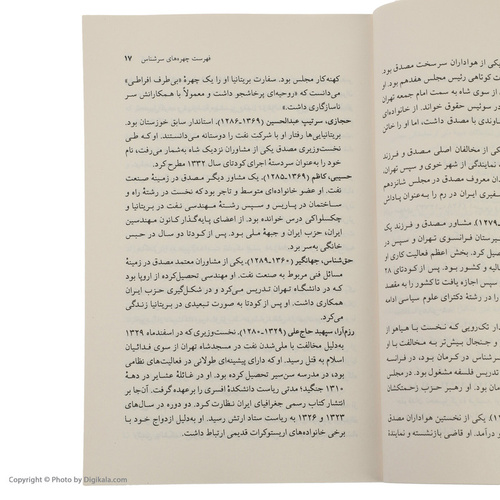 فهرست چهره‌های سرشناس ۱۷
کهنه‌کار مجلس بود. سفارت بریتانیا او را یک چهرهٔ «بی‌طرف افراطی»
می‌دانست که «روحیه‌ای پرخاشجو داشت و معمولاً با همکارانش سر
ناسازگاری داشت.»
حجازی، سرتیپ عبدالحسین (۱۳۶۹ـ۱۲۸۶). استاندار سابق خوزستان بود.
بریتانیایی‌ها رفتار او با شرکت نفت را دوستانه می‌دانستند. اوکه طی
نخست‌وزیری مصدق یکی از افسران نزدیک شاه به‌شمار می‌رفت، نام
خود را به‌عنوان سردستهٔ اجرای کودتای سال ۱۳۳۲ مطرح کرد.
حسیبی، کاظم (۱۳۶۹ـ۱۲۸۵). یک مشاور دیگر مصدق در زمینهٔ صنعت
نفت. او عضو خانواده‌ای متوسط و تاجر بود که نخست در رشتهٔ راه و
ساختمان در پاریس و سپس رشتهٔ مهندسی نفت در بریتانیا و
چکسلواکی درس خوانده بود. از اعضای پایه‌گذار کانون مهندسین
ایران، حزب ایران و جبههٔ ملی بود. پس از کودتا دو سال در حبس
خانگی به‌سر برد.
حق‌شناس، جهانگیر (۱۳۶۰ـ۱۲۸۹). یکی از مشاوران معتمد مصدق در زمینهٔ
مسائل فنی مربوط به صنعت نفت. او مهندسی تحصیل‌کرده از اروپا بود
که در دانشگاه تهران تدریس می‌کرد و در شکل‌گیری حزب ایران
همکاری داشت. او پس از کودتا به صورت تبعیدی در بریتانیا زندگی
می‌کرد.
رزم‌آرا، سپهبد حاج‌علی (۱۳۲۹ـ۱۲۸۰). نخست‌وزیری‌که در اسفندماه ۱۳۲۹
به‌دلیل مخالفت با ملی‌شدن نفت در مسجدشاه تهران از سوی فدائیان
اسلام به قتل رسید. او که دارای پیشینه‌ای طولانی در فعالیت‌های نظامی
بود، در مدرسه سن‌سیر تحصیل کرده بود. او در غائلهٔ عشایر در دههٔ
۱۳۱۰ جنگید؛ مدتی ریاست دانشکدهٔ افسری را برعهده گرفت. آن‌جا بر
انتشار کتاب رسمی جغرافیای ایران نظارت کرد. دو دوره در سال‌های
۱۳۲۳ و ۱۳۲۶ به ریاست ستاد ارتش رسید. او به‌دلیل ازدواج خود با
برخی خانواده‌های اریستوکرات قدیمی ارتباط داشت.
یکی از هواداران سرسخت مصدق بود.
کوتاهی رئیس مجلس هفدهم بود. او
از سوی شاه به سمت امام جمعه تهران
در سوئیس حقوق خواند. از خانواده‌ای
یکی از مخالفان اصلی مصدق و فرزند
نمایندگی از شهر خوی و سپس تهران
مشاور مصدق و فرزند یک
تدریس فلسفه مشغول بود. در مجلس
بود. او رهبر حزب زحمتکشان
یکی از نخستین هواداران مصدق
درآمد. او قاضی بازنشسته و نمایندهٔ
Copyright © Photo by Digikala.com